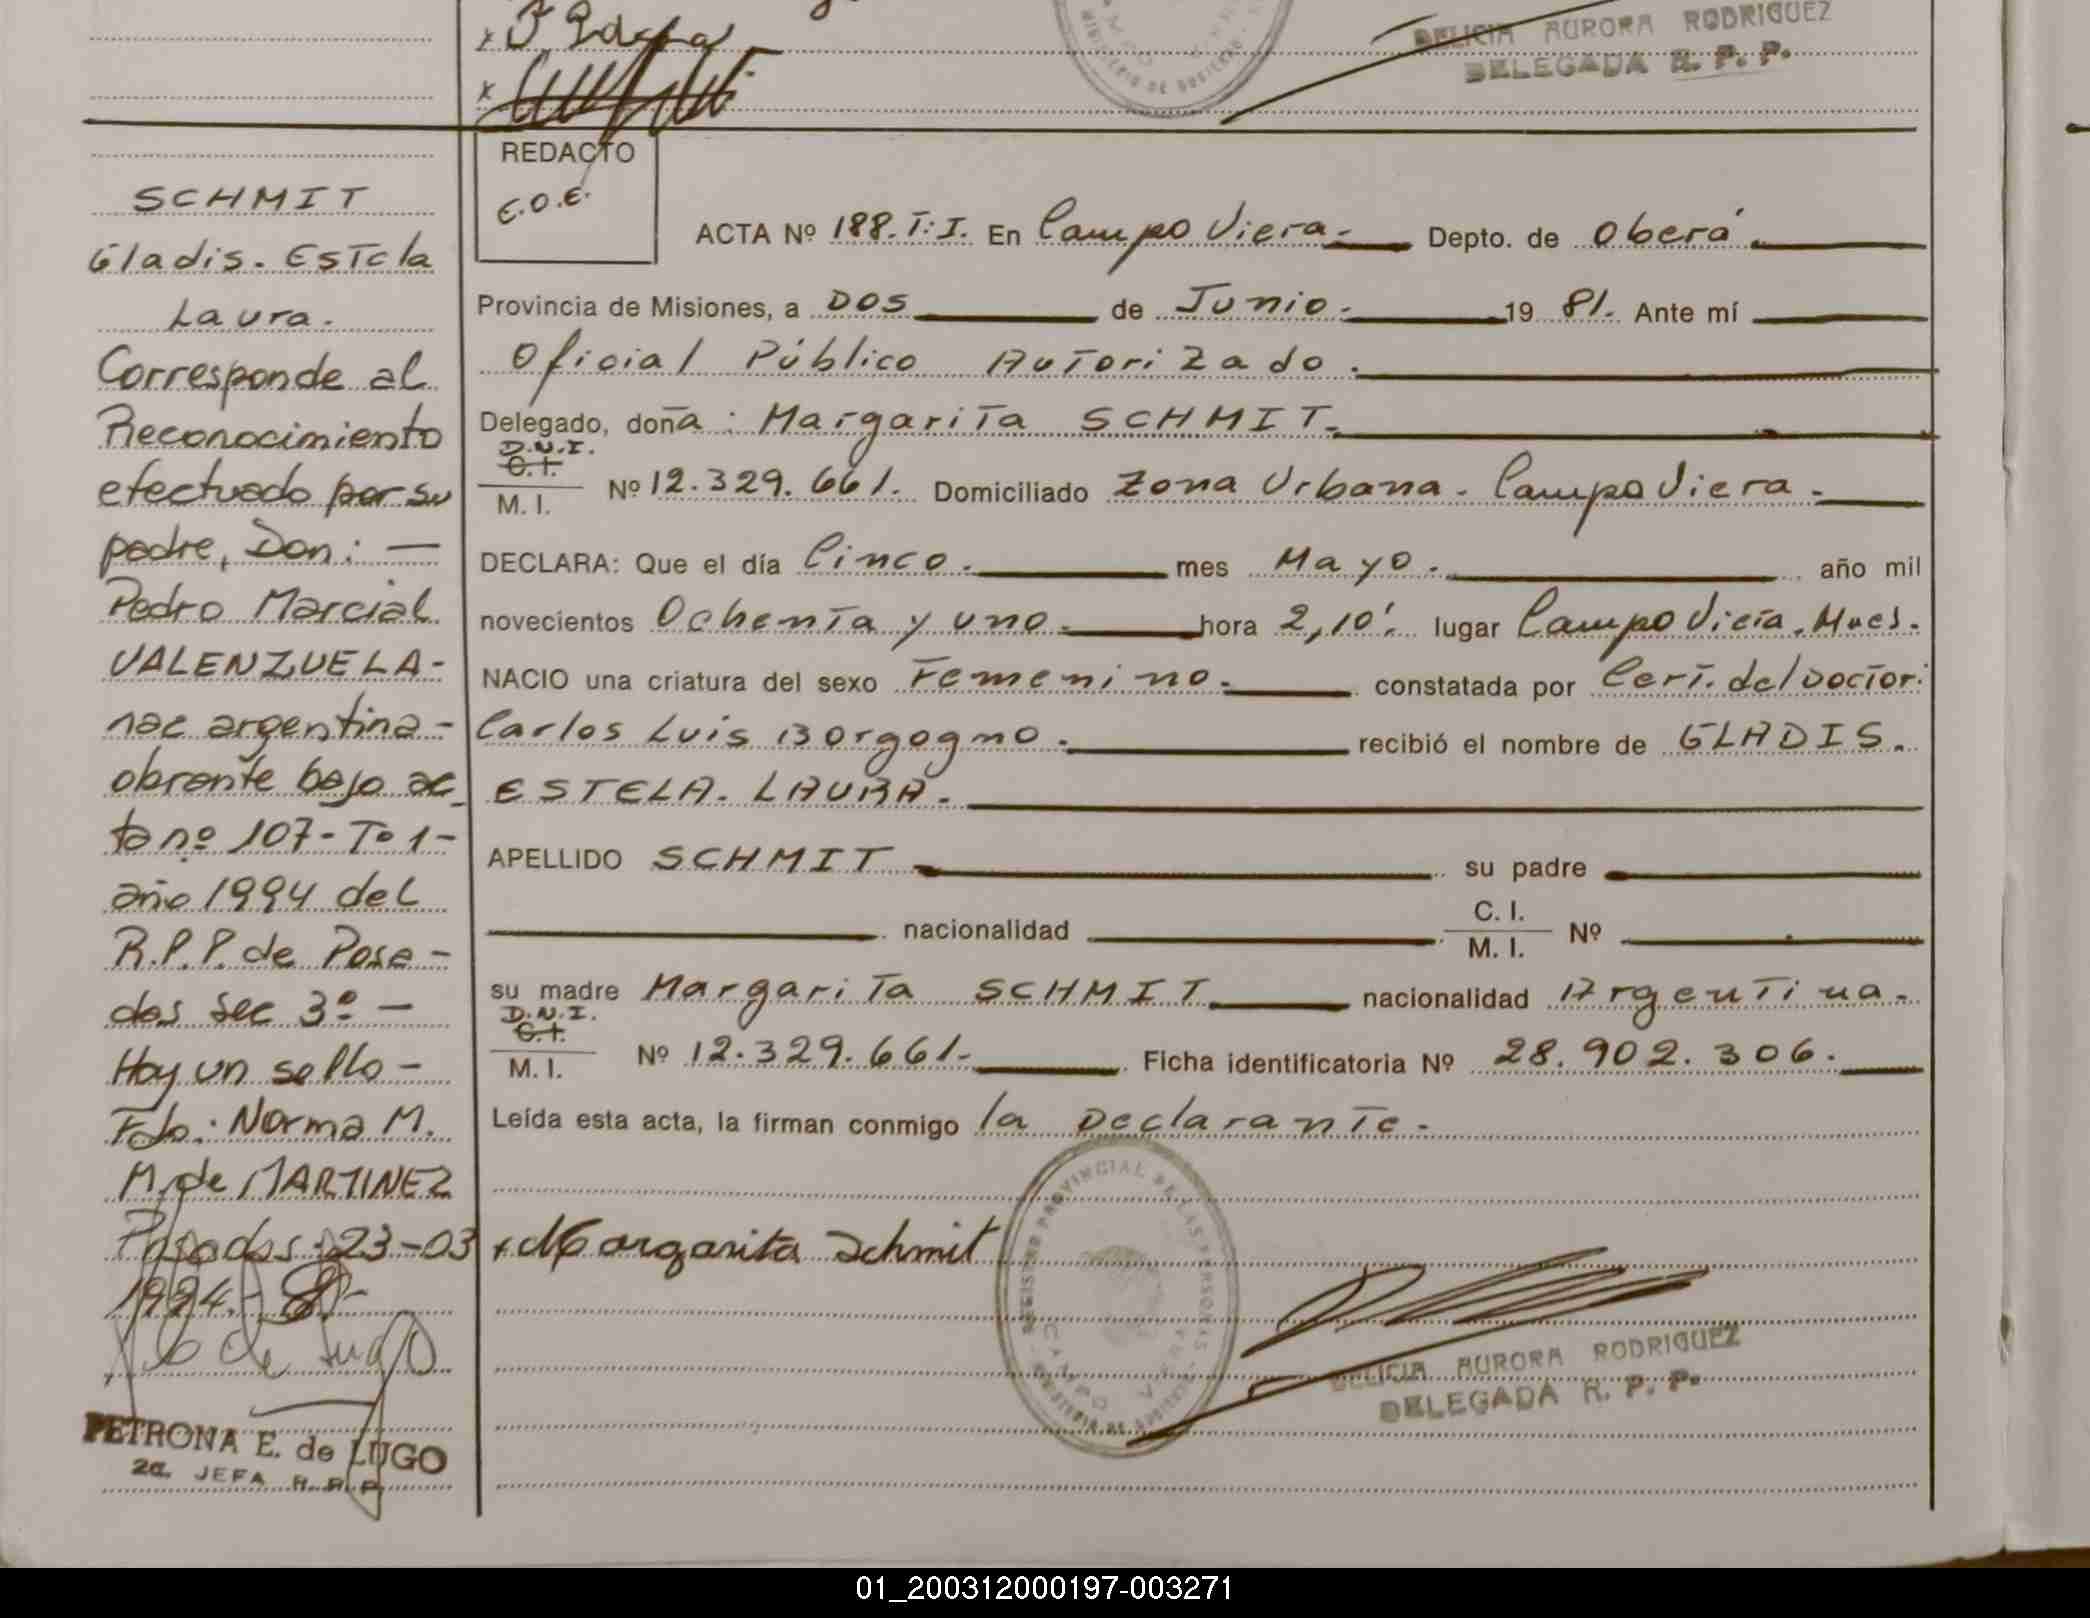 DELICIA AURORA RODRIGUEZ
DELEGADA R. P. P.
REDACTO
E.O.E.
ACTA Nº 188. T: I. En Campo Viera.- Depto. de Oberá.
Provincia de Misiones, a DOS de Junio. 19 81. Ante mí
Oficial Público Autorizado.
Delegado, doña: Margarita SCHMIT.
D.N.I.
C.I.
M. I. Nº 12.329.661. Domiciliado Zona Urbana. Campo Viera.
DECLARA: Que el día Cinco. mes Mayo. año mil
novecientos Ochenta y uno. hora 2,10'. lugar Campo Viera, Mnes.
NACIO una criatura del sexo Femenino. constatada por Cert. del Doctor:
Carlos Luis Borgogno. recibió el nombre de GLADIS.
ESTELA. LAURA.
APELLIDO SCHMIT su padre
nacionalidad C. I. M. I. Nº
su madre Margarita SCHMIT nacionalidad Argentina.
D.N.I.
C.I.
M. I. Nº 12.329.661. Ficha identificatoria Nº 28.902.306.
Leída esta acta, la firman conmigo la Declarante.
Margarita Schmit
REGISTRO PROVINCIAL DE LAS PERSONAS
CAMPO VIERA
DELICIA AURORA RODRIGUEZ
DELEGADA R. P. P.
SCHMIT
Gladis. Estela
Laura.
Corresponde al
Reconocimiento
efectuado por su
padre, Don: —
Pedro Marcial
VALENZUELA-
nac argentina-
obrante bajo ac_
ta nº 107- Tº 1-
año 1994 del
R.P.P. de Posa-
das Sec 3º -
Hay un sello -
Fdo: Norma M.
M. de MARTINEZ
Posadas: 23-03
1994.-
de Lugo
PETRONA E. de LUGO
2a. JEFA R. P. P.
01_200312000197-003271